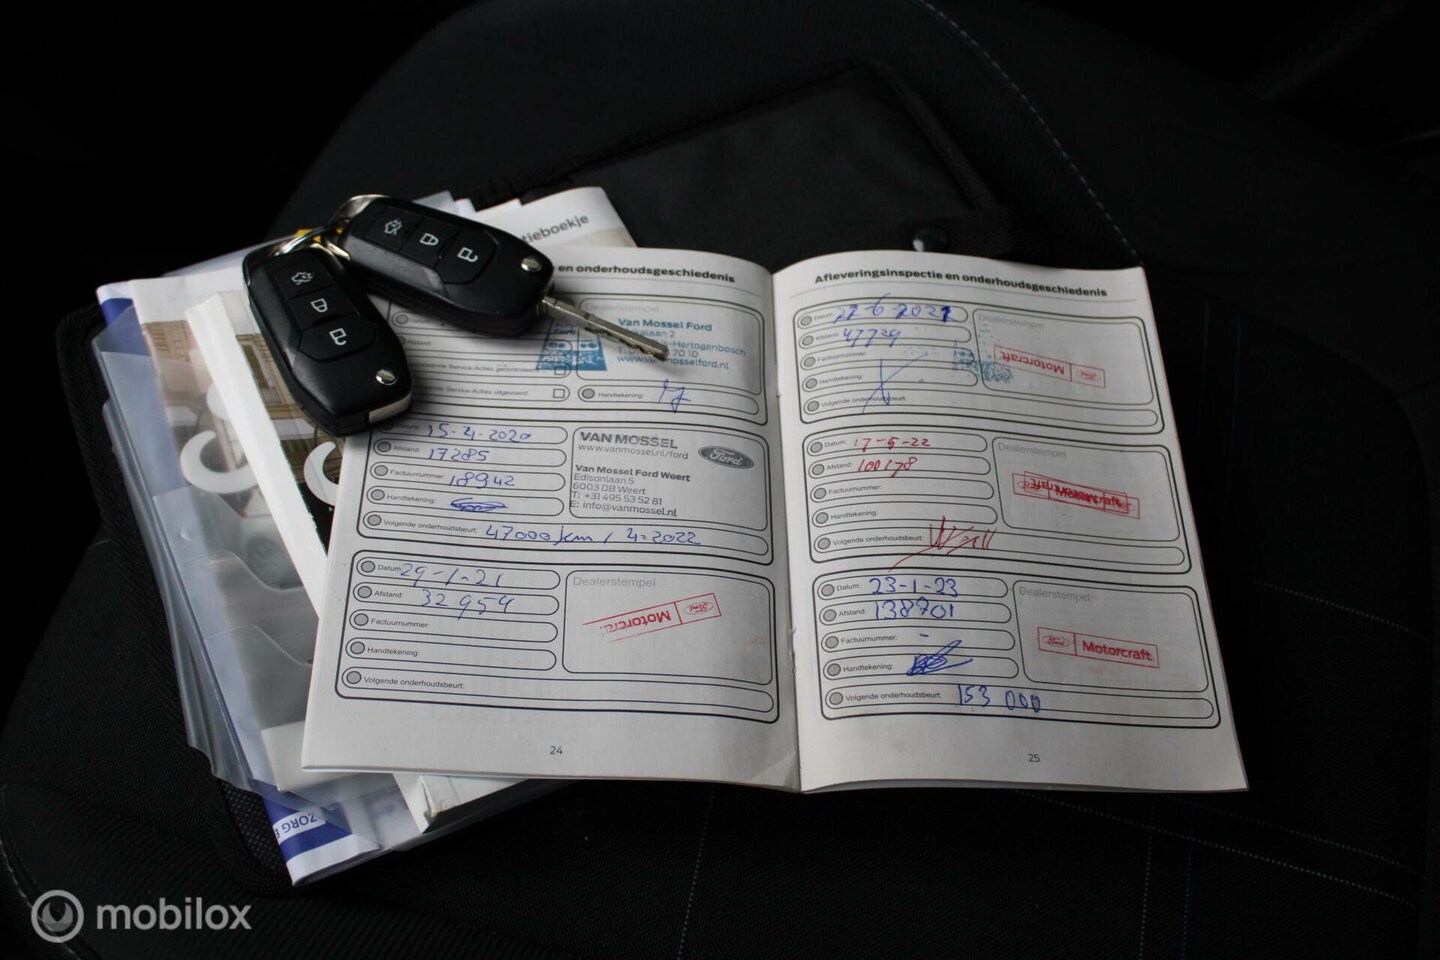 tieboekje
en onderhoudsgeschiedenis
Dealerstempel
Van Mossel Ford
laan 2
-Hertogenbosch
70 10
www.vanmosselford.nl
Service-Acties
Service-Acties uitgevoerd:
Handtekening:
15-4-2020
Afstand: 17285
Factuurnummer: 18942
Handtekening:
Volgende onderhoudsbeurt: 47000 km / 4-2022
VAN MOSSEL
www.vanmossel.nl/ford
Ford
Van Mossel Ford Weert
Edisonlaan 5
6003 DB Weert
T: +31 495 53 52 81
E: info@vanmossel.nl
Datum: 29-1-21
Afstand: 32954
Factuurnummer:
Handtekening:
Volgende onderhoudsbeurt:
Dealerstempel
Motorcraft
24
Afleveringsinspectie en onderhoudsgeschiedenis
Datum: 22-6-2021
Afstand: 47729
Factuurnummer:
Handtekening:
Volgende onderhoudsbeurt:
Dealerstempel
Motorcraft
Datum: 17-5-22
Afstand: 100178
Factuurnummer:
Handtekening:
Volgende onderhoudsbeurt:
Dealerstempel
Datum: 23-1-23
Afstand: 138701
Factuurnummer: -
Handtekening:
Volgende onderhoudsbeurt: 153 000
Dealerstempel
Ford Motorcraft
25
ZORG
mobilox